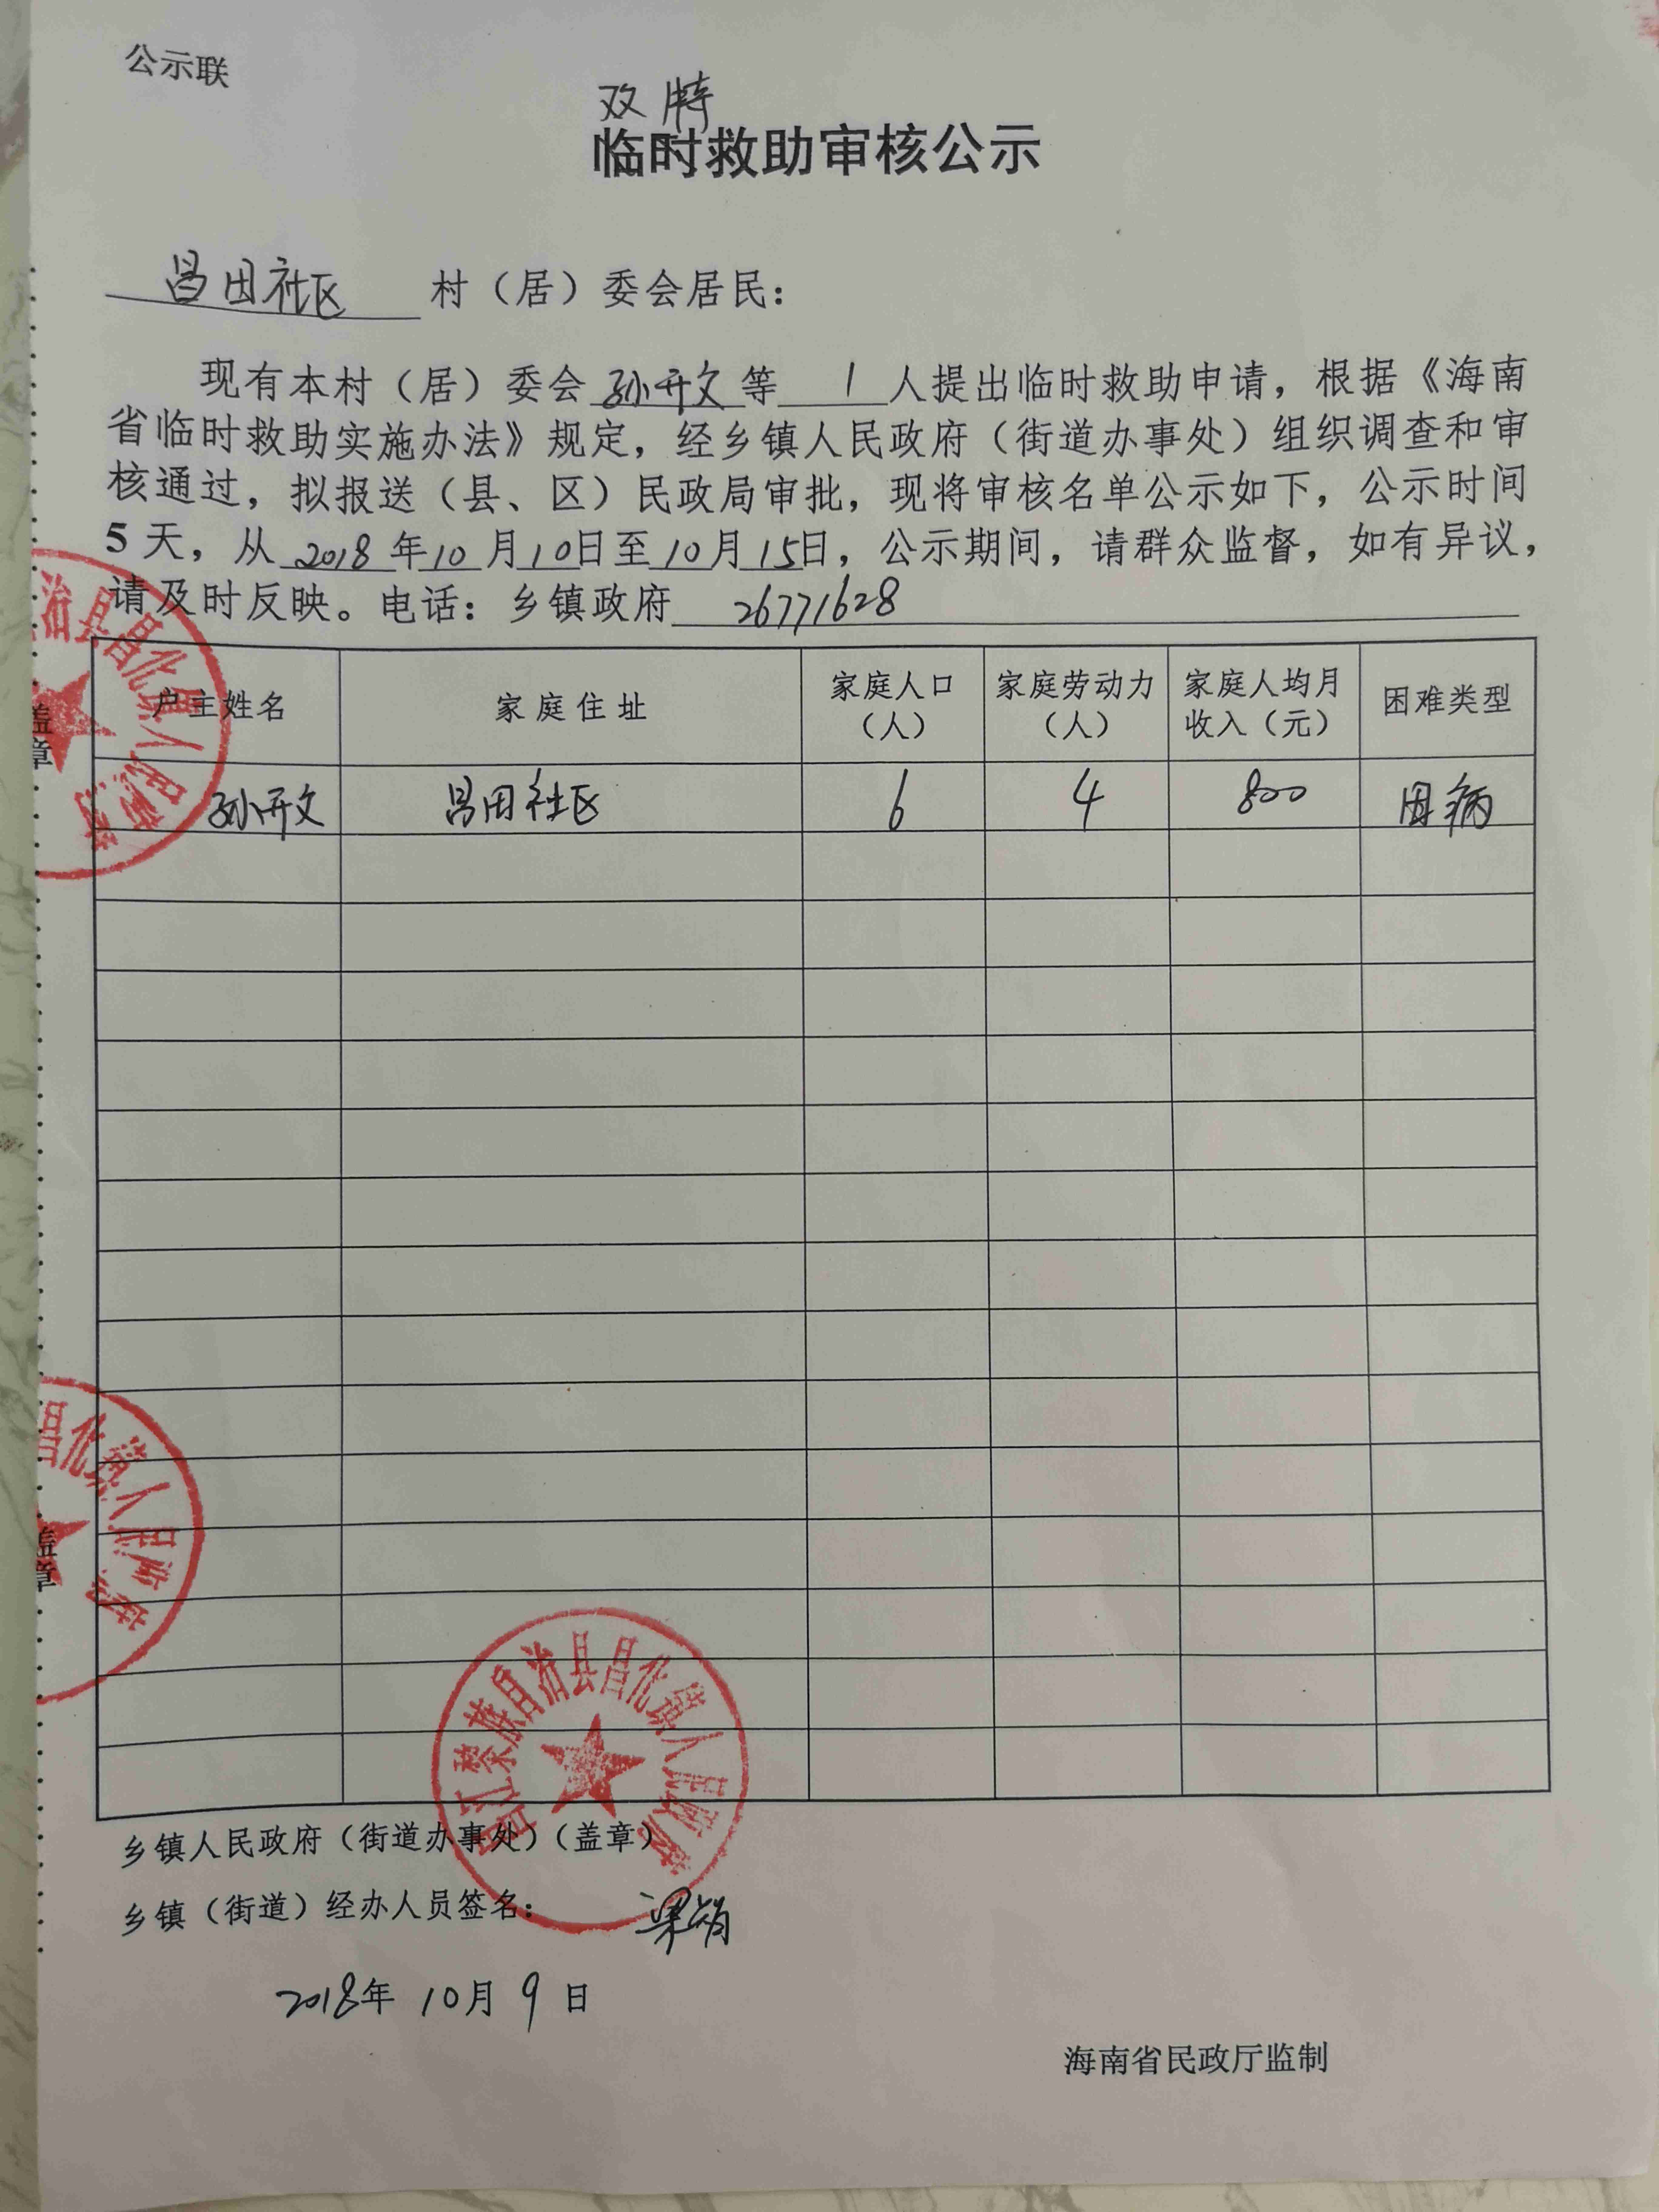 公示联
双特
临时救助审核公示
昌田社区 村（居）委会居民：
现有本村（居）委会孙开文等 1 人提出临时救助申请，根据《海南
省临时救助实施办法》规定，经乡镇人民政府（街道办事处）组织调查和审
核通过，拟报送（县、区）民政局审批，现将审核名单公示如下，公示时间
5 天，从 2018 年 10 月 10 日至 10 月 15 日，公示期间，请群众监督，如有异议，
请及时反映。电话：乡镇政府 26771628
户主姓名 家庭住址 家庭人口（人） 家庭劳动力（人） 家庭人均月收入（元） 困难类型
孙开文 昌田社区 6 4 800 因病
治县昌化镇人民政府
盖章
昌化镇人民政府
盖章
昌江黎族自治县昌化镇人民政府
乡镇人民政府（街道办事处）（盖章）
乡镇（街道）经办人员签名：
2018年 10月 9 日
海南省民政厅监制